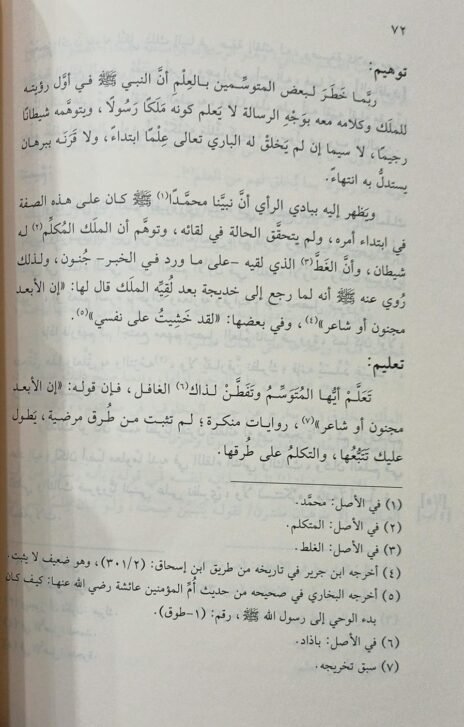 ٧٢
توهيم:
ربَّما خَطَرَ لبعض المتوسِّمين بالعِلْمِ أنَّ النبي ﷺ في أوَّل رؤيته
للملَك وكلامه معه بوَجْهِ الرسالة لا يَعلم كونه مَلَكًا رَسُولًا، ويتوهَّمه شيطانًا
رجيمًا، لا سيما إن لم يَخلقْ له الباري تعالى عِلْمًا ابتداءً، ولا قَرَنَه ببرهان
يستدلُّ به انتهاءً.
ويَظهر إليه ببادي الرأي أنَّ نبيَّنا محمَّدًا(١) ﷺ كان على هذه الصفة
في ابتداء أمره، ولم يتحقَّق الحالة في لقائه، وتوهَّم أن الملَك المُكلِّم(٢) له
شيطان، وأنَّ الغَطَّ(٣) الذي لقيه -على ما ورد في الخبر- جُنون، ولذلك
رُوي عنه ﷺ أنه لما رجع إلى خديجة بعد لُقِيِّه الملَك قال لها: «إن الأبعد
مجنون أو شاعر»(٤)، وفي بعضها: «لقد خَشِيتُ على نفسي»(٥)
تعليم:
تَعَلَّمْ أيُّها المُتَوَسِّمُ وتَفَطَّنْ لذاك(٦) الغافل، فإن قوله: «إن الأبعد
مجنون أو شاعر»(٧)، روايات منكرة؛ لم تثبت من طُرق مرضية، يَطول
عليك تَتَبُّعُها، والتكلمُ على طُرقها.
(١) في الأصل: محمَّد.
(٢) في الأصل: المتكلم.
(٣) في الأصل: الغلط.
(٤) أخرجه ابن جرير في تاريخه من طريق ابن إسحاق: (٣٠١/٢)، وهو ضعيف لا يثبت.
(٥) أخرجه البخاري في صحيحه من حديث أُمِّ المؤمنين عائشة رضي الله عنها: كيف كان
بدء الوحي إلى رسول الله ﷺ، رقم: (١-طوق).
(٦) في الأصل: باذاد.
(٧) سبق تخريجه.